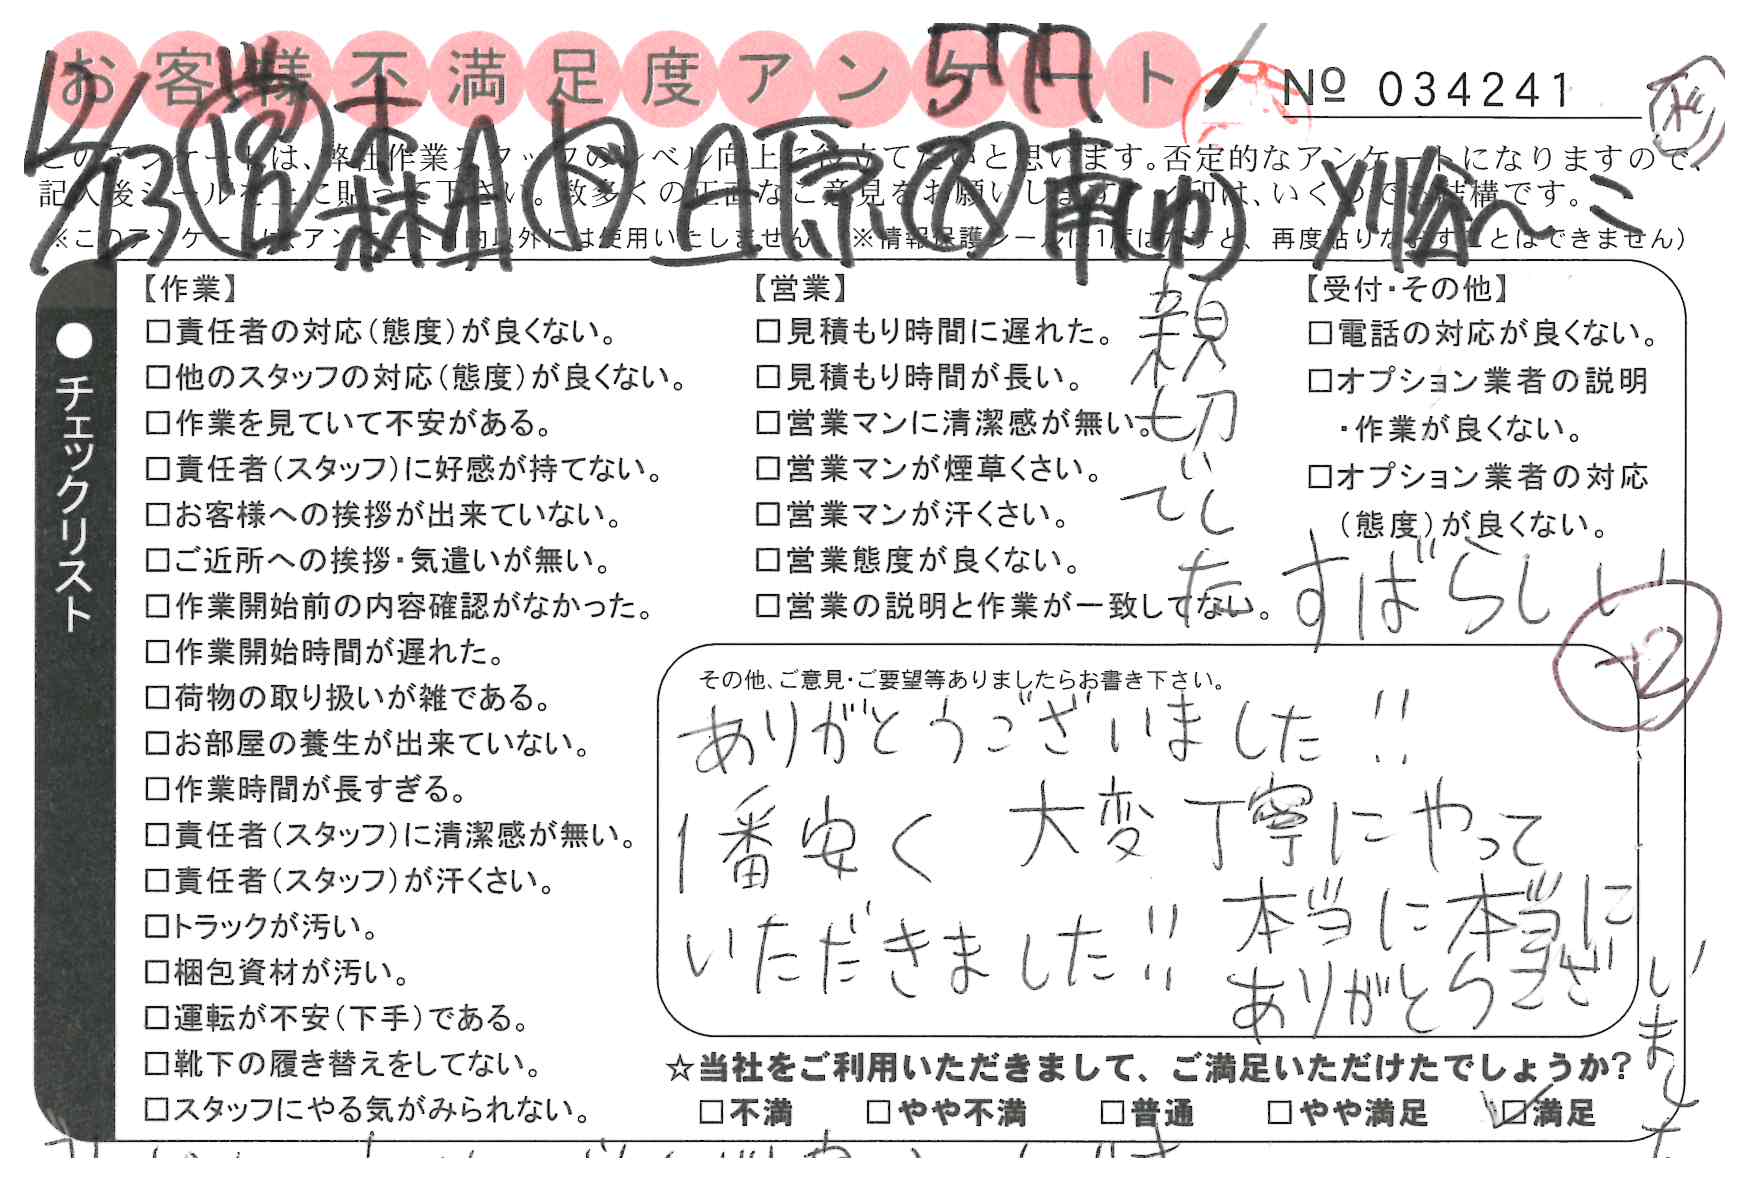 お客様不満足度アンケート
№ 034241
12/13
このアンケートは、弊社作業スタッフのレベル向上に役立てたいと思います。否定的なアンケートになりますので、
記入後シールを上に貼って下さい。数多くの正直なご意見をお願いします。
(※このアンケートは、アンケート目的以外には使用いたしません。 ※情報保護シールは1度はがすと、再度貼りなおすことはできません)
●チェックリスト
【作業】
□責任者の対応(態度)が良くない。
□他のスタッフの対応(態度)が良くない。
□作業を見ていて不安がある。
□責任者(スタッフ)に好感が持てない。
□お客様への挨拶が出来ていない。
□ご近所への挨拶・気遣いが無い。
□作業開始前の内容確認がなかった。
□作業開始時間が遅れた。
□荷物の取り扱いが雑である。
□お部屋の養生が出来ていない。
□作業時間が長すぎる。
□責任者(スタッフ)に清潔感が無い。
□責任者(スタッフ)が汗くさい。
□トラックが汚い。
□梱包資材が汚い。
□運転が不安(下手)である。
□靴下の履き替えをしてない。
□スタッフにやる気がみられない。
【営業】
□見積もり時間に遅れた。
□見積もり時間が長い。
□営業マンに清潔感が無い。
□営業マンが煙草くさい。
□営業マンが汗くさい。
□営業態度が良くない。
□営業の説明と作業が一致してない。
親切でした
【受付・その他】
□電話の対応が良くない。
□オプション業者の説明
・作業が良くない。
□オプション業者の対応
(態度)が良くない。
すばらしい
+2
その他、ご意見・ご要望等ありましたらお書き下さい。
ありがとうございました!!
1番安く 大変丁寧にやって
いただきました!! 本当に本当に
ありがとうございました
☆当社をご利用いただきまして、ご満足いただけたでしょうか?
□不満 □やや不満 □普通 □やや満足 ☑満足